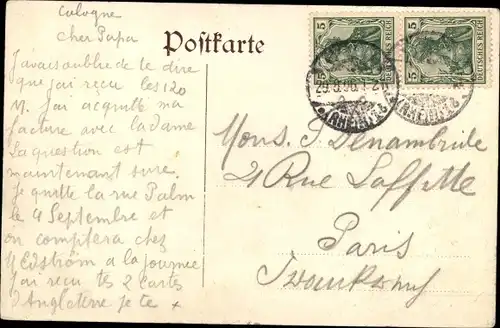 Cologne
cher Papa
Postkarte
J'avais oublié de te dire
que j'ai reçu les 120
M. J'ai acquitté ma
facture avec la dame
La question est
maintenant sure.
Je quitte la rue Palm
le 4 Septembre et
on comptera chez
à la journée
J'ai reçu tes 2 Cartes
d'Angleterre je te x
5 5
DEUTSCHES REICH
DEUTSCHES REICH
Mons. J. Denambride
21 Rue Laffitte
Paris